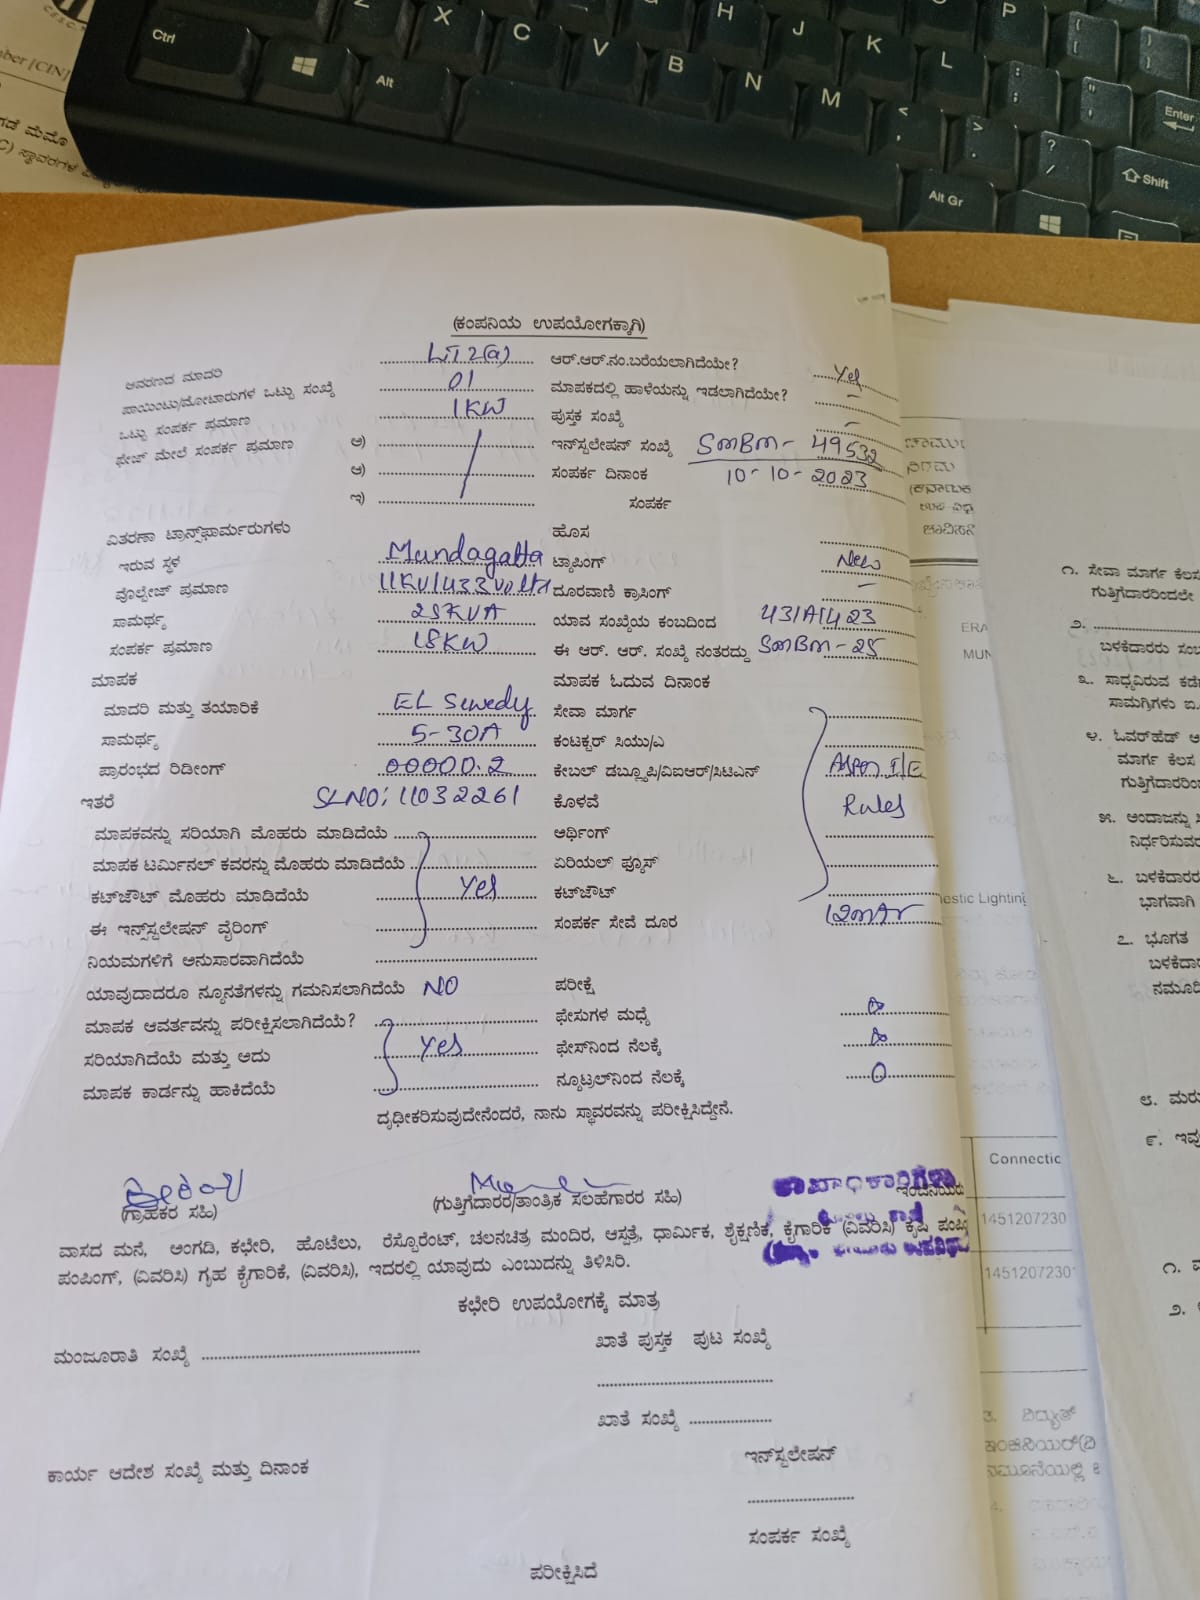 Ctrl Alt X C V B N M H J K L P Enter Shift Alt Gr
(ಕಂಪನಿಯ ಉಪಯೋಗಕ್ಕಾಗಿ)
ಆವರಣದ ಮಾದರಿ LT2(a) ಆರ್.ಆರ್.ನಂ.ಬರೆಯಲಾಗಿದೆಯೇ? Yes
ಪಾಯಿಂಟು/ಮೋಟಾರುಗಳ ಒಟ್ಟು ಸಂಖ್ಯೆ 01 ಮಾಪಕದಲ್ಲಿ ಹಾಳೆಯನ್ನು ಇಡಲಾಗಿದೆಯೇ? –
ಒಟ್ಟು ಸಂಪರ್ಕ ಪ್ರಮಾಣ 1KW ಪುಸ್ತಕ ಸಂಖ್ಯೆ –
ಫೇಜ್ ಮೇಲೆ ಸಂಪರ್ಕ ಪ್ರಮಾಣ ಅ) ಇನ್‌ಸ್ಟಲೇಷನ್ ಸಂಖ್ಯೆ SMBM- 49532
ಆ) ಸಂಪರ್ಕ ದಿನಾಂಕ 10-10-2023
ಇ) ಸಂಪರ್ಕ
ವಿತರಣಾ ಟ್ರಾನ್ಸ್‌ಫಾರ್ಮರುಗಳು ಹೊಸ
ಇರುವ ಸ್ಥಳ Mundagatta ಟ್ಯಾಪಿಂಗ್ New
ವೊಲ್ಟೇಜ್ ಪ್ರಮಾಣ 11KV/433volta ದೂರವಾಣಿ ಕ್ರಾಸಿಂಗ್ –
ಸಾಮರ್ಥ್ಯ 25KVA ಯಾವ ಸಂಖ್ಯೆಯ ಕಂಬದಿಂದ
ಸಂಪರ್ಕ ಪ್ರಮಾಣ 18KW ಈ ಆರ್. ಆರ್. ಸಂಖ್ಯೆ ನಂತರದ್ದು SMBM-25
ಮಾಪಕ ಮಾಪಕ ಓದುವ ದಿನಾಂಕ
ಮಾದರಿ ಮತ್ತು ತಯಾರಿಕೆ EL Sewedy ಸೇವಾ ಮಾರ್ಗ
ಸಾಮರ್ಥ್ಯ 5-30A ಕಂಟಕ್ಟರ್ ಸಿಯು/ಎ
ಪ್ರಾರಂಭದ ರಿಡೀಂಗ್ 00000.2 ಕೇಬಲ್ ಡಬ್ಲ್ಯೂಪಿ/ವಿಐಆರ್/ಸಿಟಿಎಸ್ As per I/E
ಇತರೆ SLNO: 11032261 ಕೊಳವೆ Rules
ಮಾಪಕವನ್ನು ಸರಿಯಾಗಿ ಮೊಹರು ಮಾಡಿದೆಯೆ ಅರ್ಥಿಂಗ್
ಮಾಪಕ ಟರ್ಮಿನಲ್ ಕವರನ್ನು ಮೊಹರು ಮಾಡಿದೆಯೆ ಏರಿಯಲ್ ಫ್ಯೂಸ್
ಕಟ್‌ಜೌಟ್ ಮೊಹರು ಮಾಡಿದೆಯೆ Yes ಕಟ್‌ಜೌಟ್
ಈ ಇನ್ಸ್‌ಸ್ಟಲೇಷನ್ ವೈರಿಂಗ್ ಸಂಪರ್ಕ ಸೇವೆ ದೂರ 12mtr
ನಿಯಮಗಳಿಗೆ ಅನುಸಾರವಾಗಿದೆಯೆ
ಯಾವುದಾದರೂ ನ್ಯೂನತೆಗಳನ್ನು ಗಮನಿಸಲಾಗಿದೆಯೆ NO ಪರೀಕ್ಷೆ
ಮಾಪಕ ಆವರ್ತವನ್ನು ಪರೀಕ್ಷಿಸಲಾಗಿದೆಯೆ? ಫೇಸುಗಳ ಮಧ್ಯೆ
ಸರಿಯಾಗಿದೆಯೆ ಮತ್ತು ಅದು Yes ಫೇಸ್‌ನಿಂದ ನೆಲಕ್ಕೆ
ಮಾಪಕ ಕಾರ್ಡನ್ನು ಹಾಕಿದೆಯೆ ನ್ಯೂಟ್ರಲ್‌ನಿಂದ ನೆಲಕ್ಕೆ
ದೃಢೀಕರಿಸುವುದೇನೆಂದರೆ, ನಾನು ಸ್ಥಾವರವನ್ನು ಪರೀಕ್ಷಿಸಿದ್ದೇನೆ.
(ಗ್ರಾಹಕರ ಸಹಿ) (ಗುತ್ತಿಗೆದಾರರ/ತಾಂತ್ರಿಕ ಸಲಹೆಗಾರರ ಸಹಿ)
ವಾಸದ ಮನೆ, ಅಂಗಡಿ, ಕಛೇರಿ, ಹೊಟೆಲು, ರೆಸ್ಟೊರೆಂಟ್, ಚಲನಚಿತ್ರ ಮಂದಿರ, ಆಸ್ಪತ್ರೆ, ಧಾರ್ಮಿಕ, ಶೈಕ್ಷಣಿಕ, ಕೈಗಾರಿಕೆ (ವಿವರಿಸಿ) ಕೃಷಿ ಪಂಪು
ಪಂಪಿಂಗ್, (ವಿವರಿಸಿ) ಗೃಹ ಕೈಗಾರಿಕೆ, (ವಿವರಿಸಿ), ಇದರಲ್ಲಿ ಯಾವುದು ಎಂಬುದನ್ನು ತಿಳಿಸಿರಿ.
ಕಛೇರಿ ಉಪಯೋಗಕ್ಕೆ ಮಾತ್ರ
ಮಂಜೂರಾತಿ ಸಂಖ್ಯೆ ಖಾತೆ ಪುಸ್ತಕ ಪುಟ ಸಂಖ್ಯೆ
ಖಾತೆ ಸಂಖ್ಯೆ
ಕಾರ್ಯ ಆದೇಶ ಸಂಖ್ಯೆ ಮತ್ತು ದಿನಾಂಕ ಇನ್‌ಸ್ಟಲೇಷನ್
ಸಂಪರ್ಕ ಸಂಖ್ಯೆ
ಪರೀಕ್ಷಿಸಿದೆ
Connectic
1451207230
1451207230
೧. ಸೇವಾ ಮಾರ್ಗ ಕೆಲಸ
ಗುತ್ತಿಗೆದಾರರಿಂದಲೇ
೨.